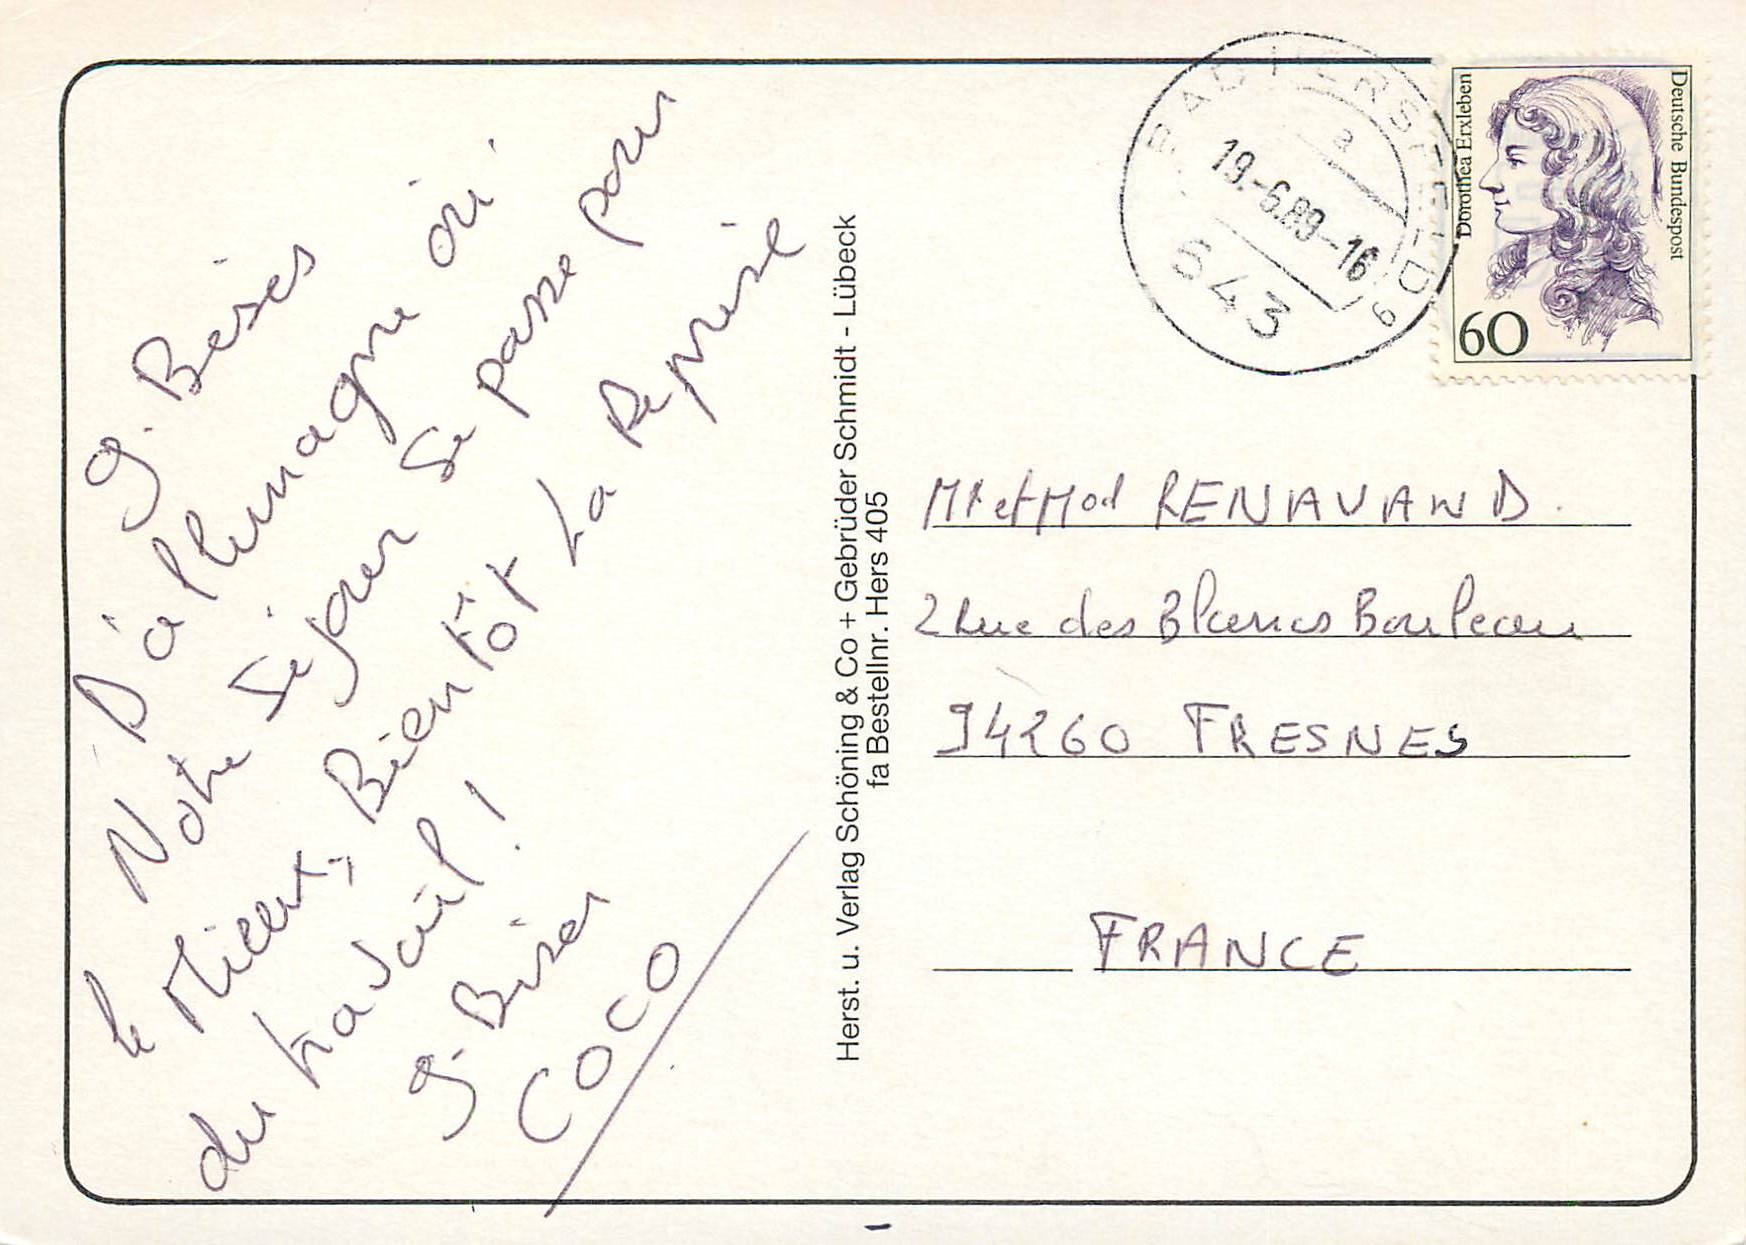 G. Bises
D'allemagne où
Notre séjour se passe pour
le Mieux, Bientôt La Reprise
du travail !
G. Bises
COCO
Herst. u. Verlag Schöning & Co + Gebrüder Schmidt - Lübeck
fa Bestellnr. Hers 405
BAD HERSFELD 9
a
19.-6.89-16
643
Deutsche Bundespost
Dorothea Erxleben
60
Mr et Md RENAVAND.
2 Rue des Blancs Bouleau
94260 FRESNES
FRANCE